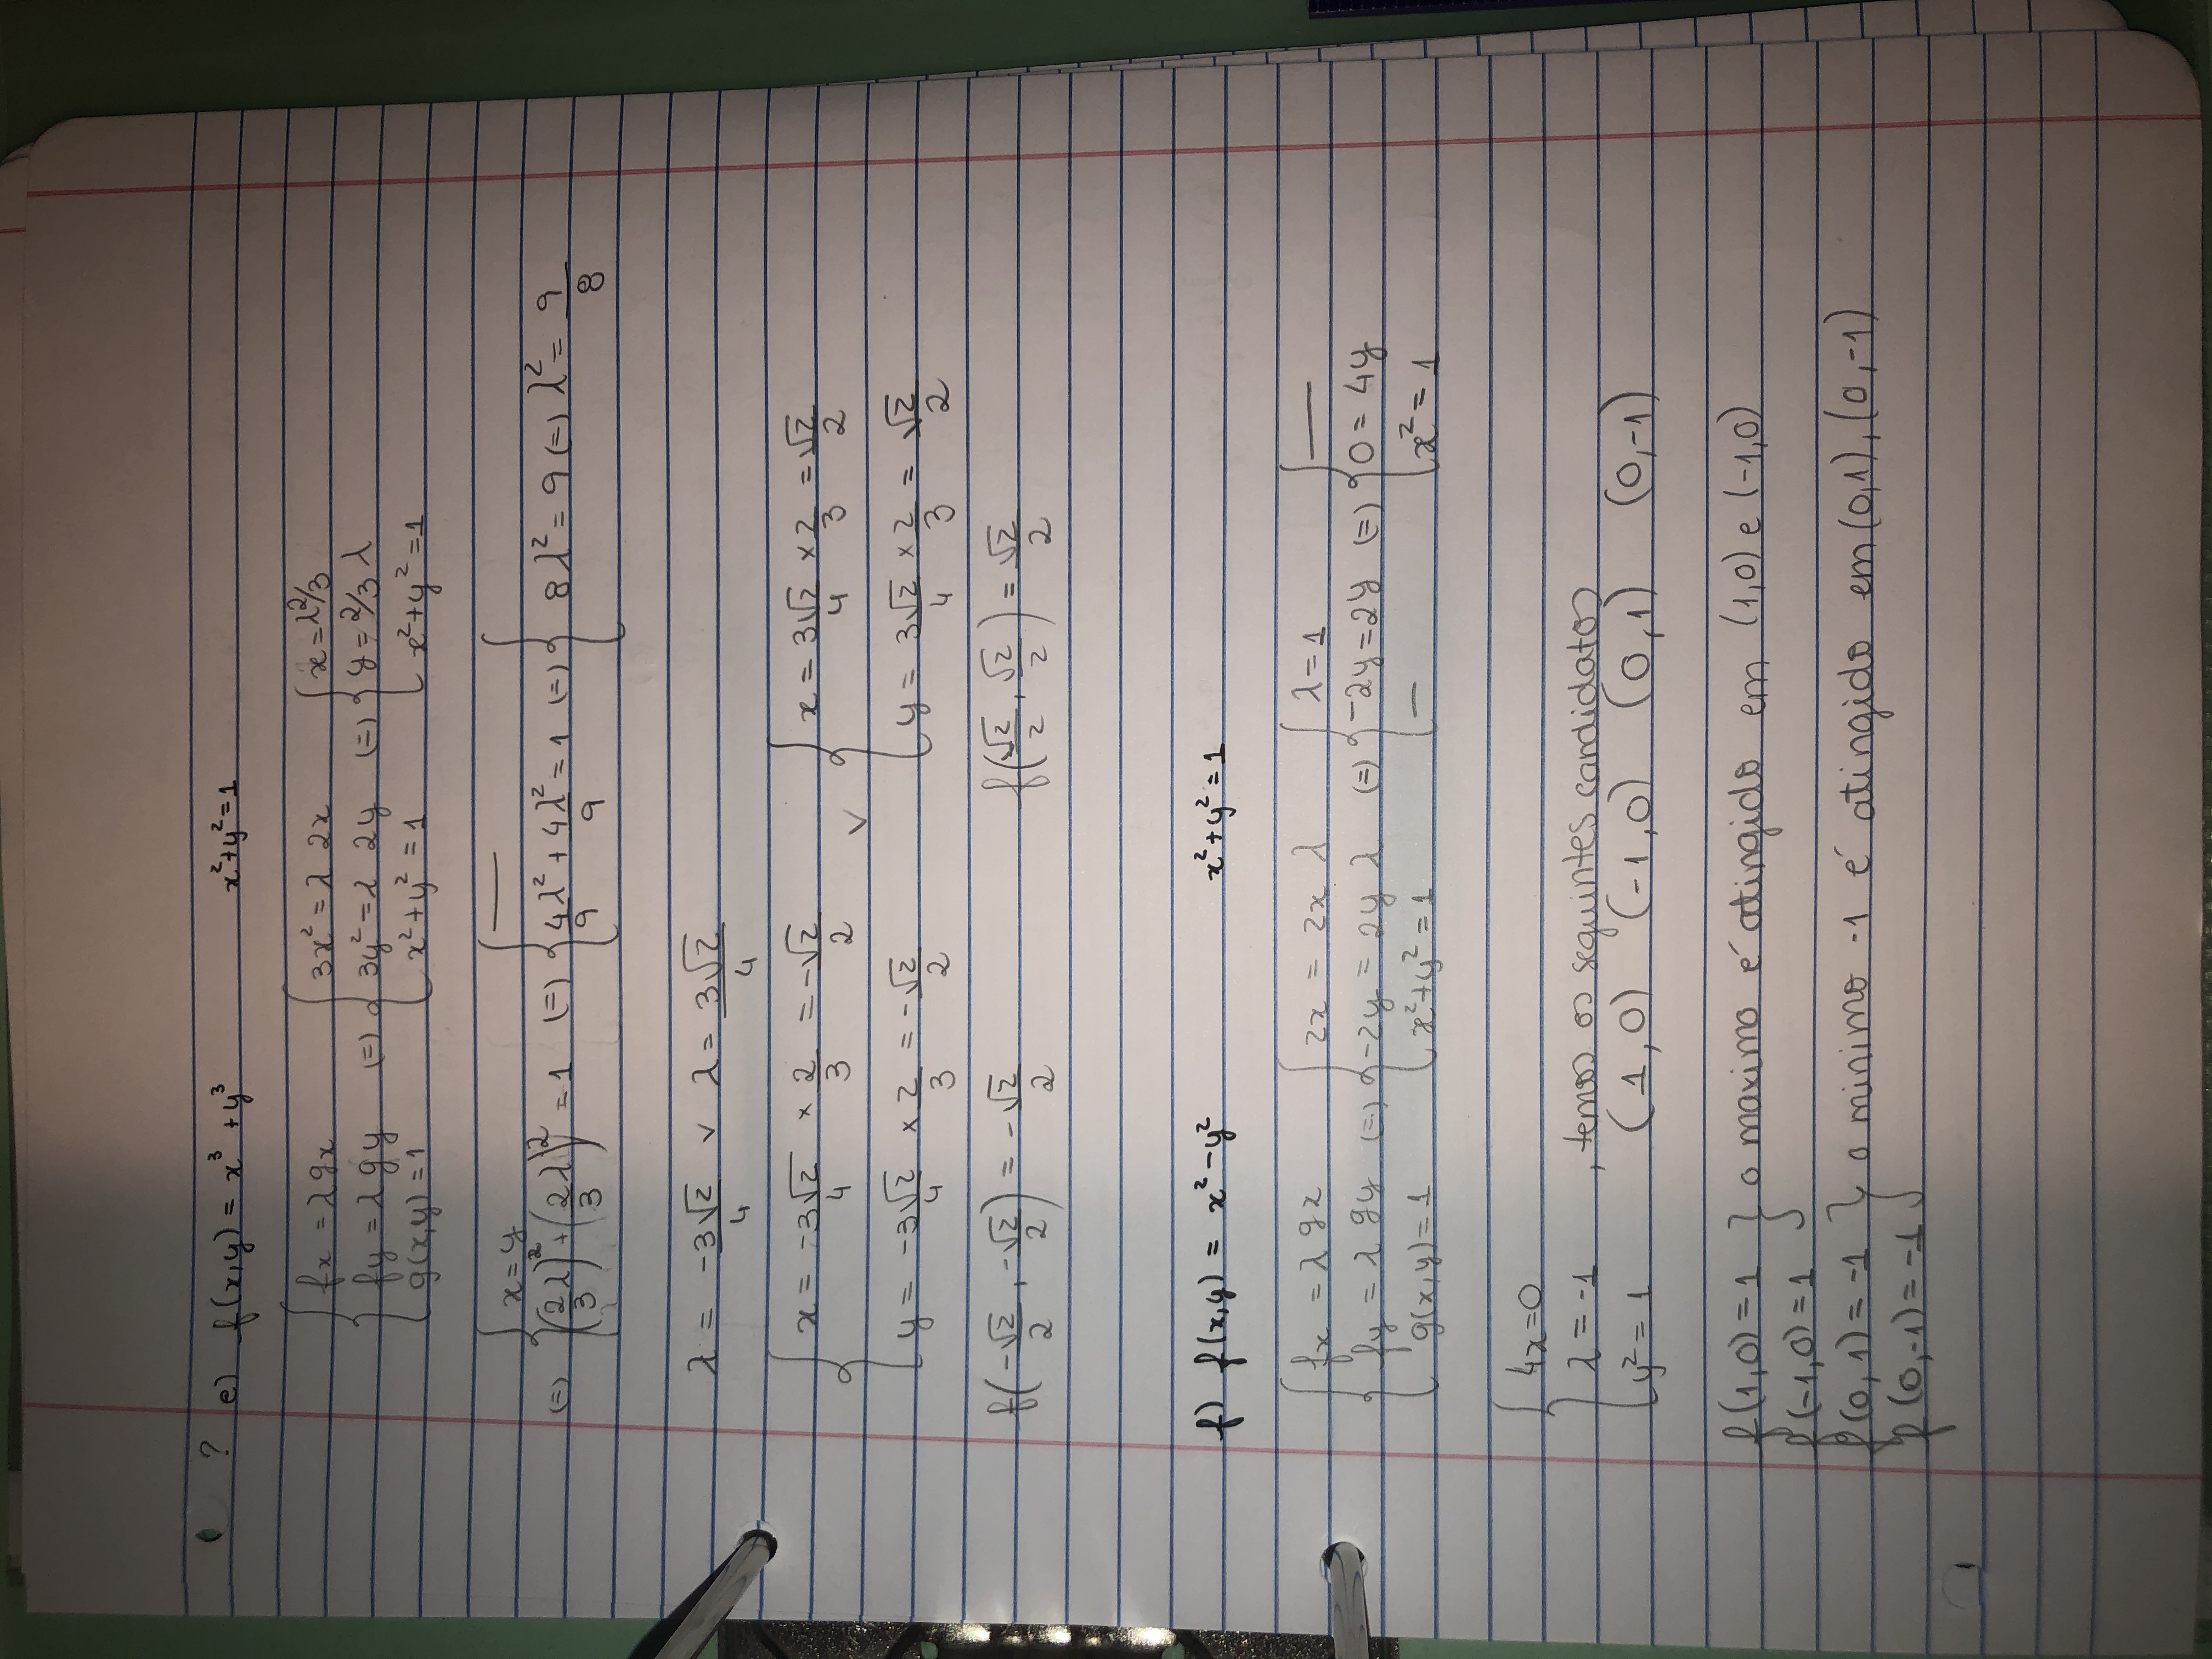 ? e) f(x,y) = x³ + y³ x²+y²=1
{ fx = λ gx { 3x² = λ 2x { x = λ2/3
{ fy = λ gy (=) { 3y² = λ 2y (=) { y = 2/3 λ
{ g(x,y) = 1 { x²+y² = 1 { x²+y² = 1
(=) { x = y { (2/3 λ)² + (2λ/3)² = 1 (=) { — { 4λ²/9 + 4λ²/9 = 1 (=) { 8λ² = 9 (=) λ² = 9/8
λ = -3√2/4 ∨ λ = 3√2/4
{ x = -3√2/4 × 2/3 = -√2/2 ∨ { x = 3√2/4 × 2/3 = √2/2
{ y = -3√2/4 × 2/3 = -√2/2 { y = 3√2/4 × 2/3 = √2/2
f(-√2/2, -√2/2) = -√2/2 f(√2/2, √2/2) = √2/2
f) f(x,y) = x² - y² x²+y² = 1
{ fx = λ gx { 2x = 2x λ { λ = 1 { —
{ fy = λ gy (=) { -2y = 2y λ (=) { -2y = 2y (=) { 0 = 4y
{ g(x,y) = 1 { x²+y² = 1 { — { x² = 1
{ 4x = 0
{ λ = -1 , temos os seguintes candidatos
{ y² = 1 (1,0) (-1,0) (0,1) (0,-1)
f(1,0) = 1 } o maximo é atingido em (1,0) e (-1,0)
f(-1,0) = 1
f(0,1) = -1 } o minimo -1 é atingido em (0,1), (0,-1)
f(0,-1) = -1